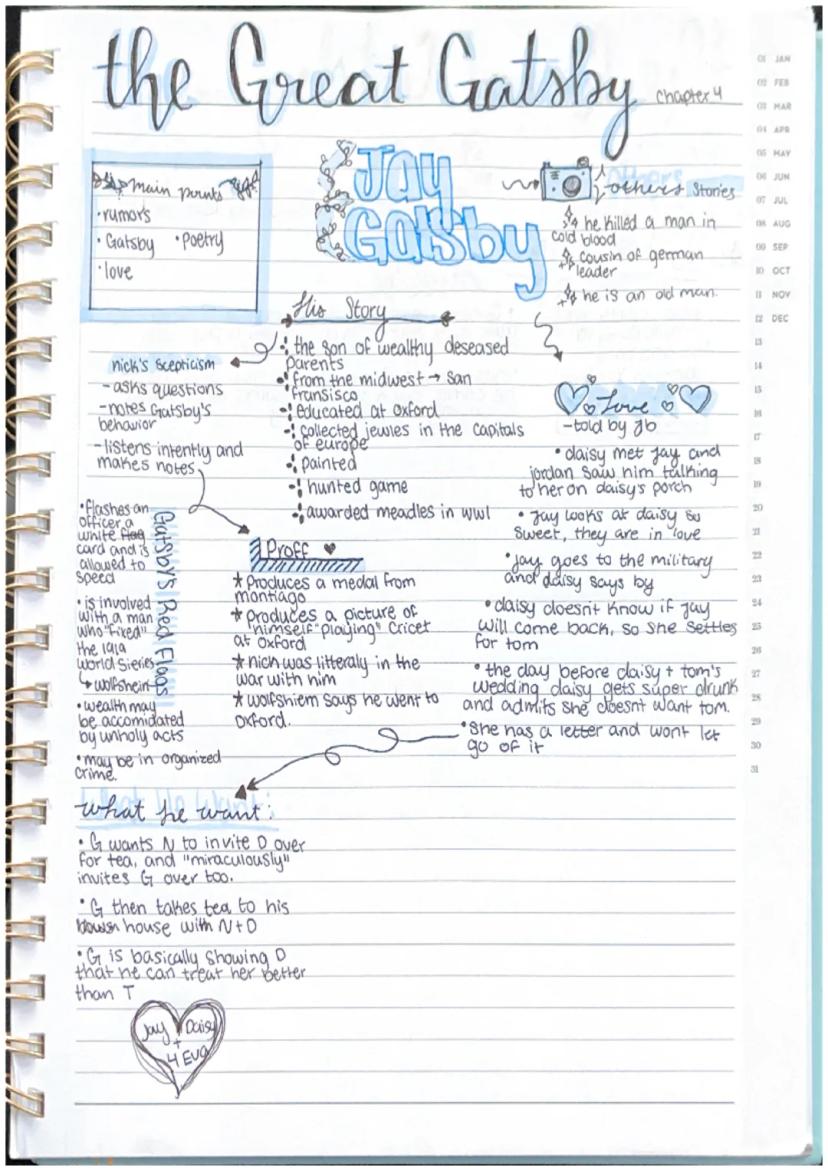 the Great Gatsby
chapter 4
01 JAN
02 FEB
03 MAR
04 APR
05 MAY
06 JUN
07 JUL
08 AUG
09 SEP
10 OCT
11 NOV
12 DEC
13
14
15
16
17
18
19
20
21
22
23
24
25
26
27
28
29
30
31
main points
•rumors
• Gatsby •Poetry
•love
Jay
Gatsby
others Stories
he killed a man in
cold blood
cousin of german
leader
he is an old man.
His Story
the son of wealthy deseased
parents
from the midwest → San
Fransisco
educated at Oxford
collected jewles in the capitals
of europe
painted
hunted game
awarded meadles in WWI
nick's scepticism
-asks questions
-notes Gatsby's
behavior
-listens intently and
makes notes
Gatsby's Red Flags
•flashes an
officer a
white flag
card and is
allowed to
speed
•is involved
with a man
who "fixed"
the 1919
World Sieries
↳ wolfshein
•wealth may
be accomidated
by unholy acts
•may be in organized
crime.
Proff ♥
★ Produces a medal from
montiago
★ Produces a picture of
himself "playing" Cricet
at Oxford
★ nich was litteraly in the
war with him
★ wolfshiem says he went to
Oxford.
Love
-told by JB
• daisy met Jay and
jordan saw him talking
to her on daisy's porch
• Jay looks at daisy so
sweet, they are in love
•Jay goes to the military
and daisy says by
•daisy doesn't know if Jay
will come back, so she settles
for tom
•the day before daisy + tom's
wedding daisy gets super drunk
and admits she doesnt want tom.
•She has a letter and wont let
go of it
what he want:
• G wants N to invite D over
for tea, and "miraculously"
invites G over too.
•G then takes tea to his
house with N+D
•G is basically showing D
that he can treat her better
than T
Jay Daisy
+
4 Eva